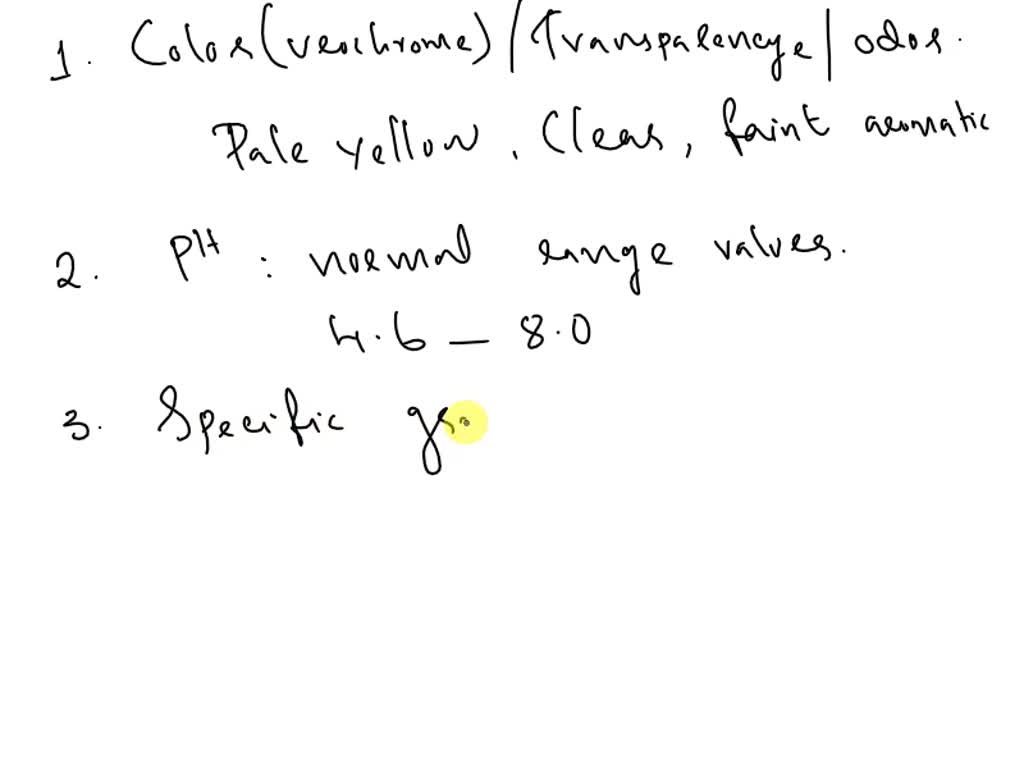 1. Color (urochrome) / Transparency / odor.
Pale yellow, Clear, faint aromatic
2. pH : normal range values.
4.6 – 8.0
3. Specific gr